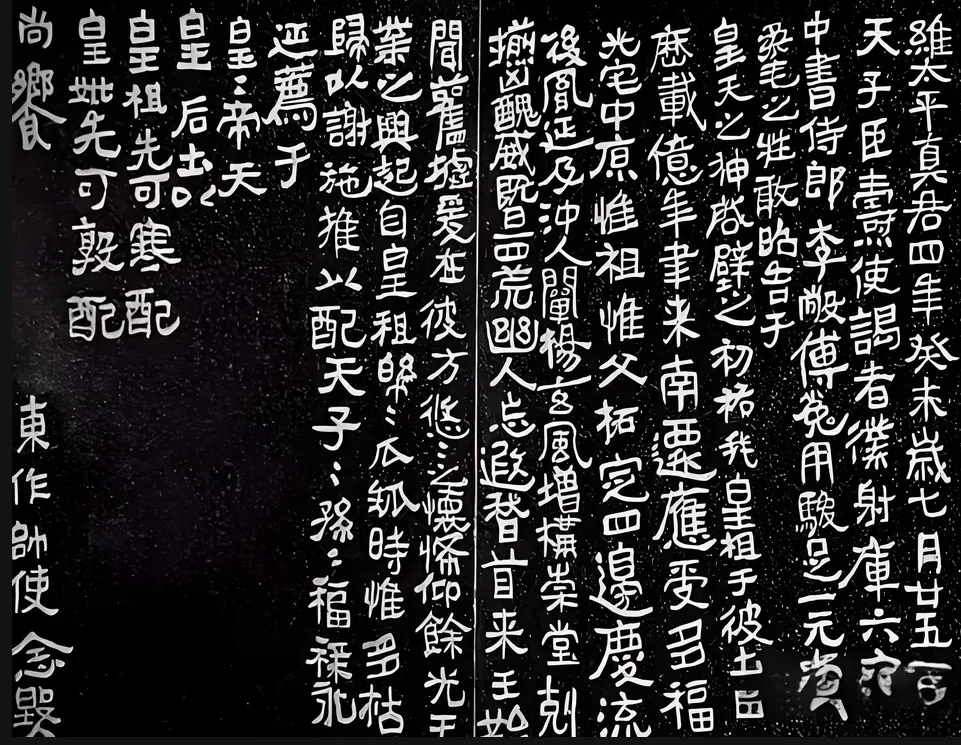 維太平真君四年癸未歲七月廿五日
天子臣燾使謁者僕射庫六官
中書侍郎李敞傅㝹用駿足一元大武
柔毛之牲敢昭告于
皇天之神啓辟之初祐我皇祖于彼土田
歷載億年聿来南遷應受多福
光宅中原惟祖惟父拓定四邊慶流
後胤延及沖人闡楊玄風增構崇堂剋
揃凶醜威暨四荒幽人忘遐稽首来王始
聞舊墟爰在彼方悠〻之懷悕仰餘光王
業之興起自皇祖綿〻瓜瓞時惟多祜
歸以謝施推以配天子〻孫〻福祿永
延薦于
皇〻帝天
皇 后土以
皇祖先可寒配
皇妣先可敦配
尚饗
東作帥使念鑿